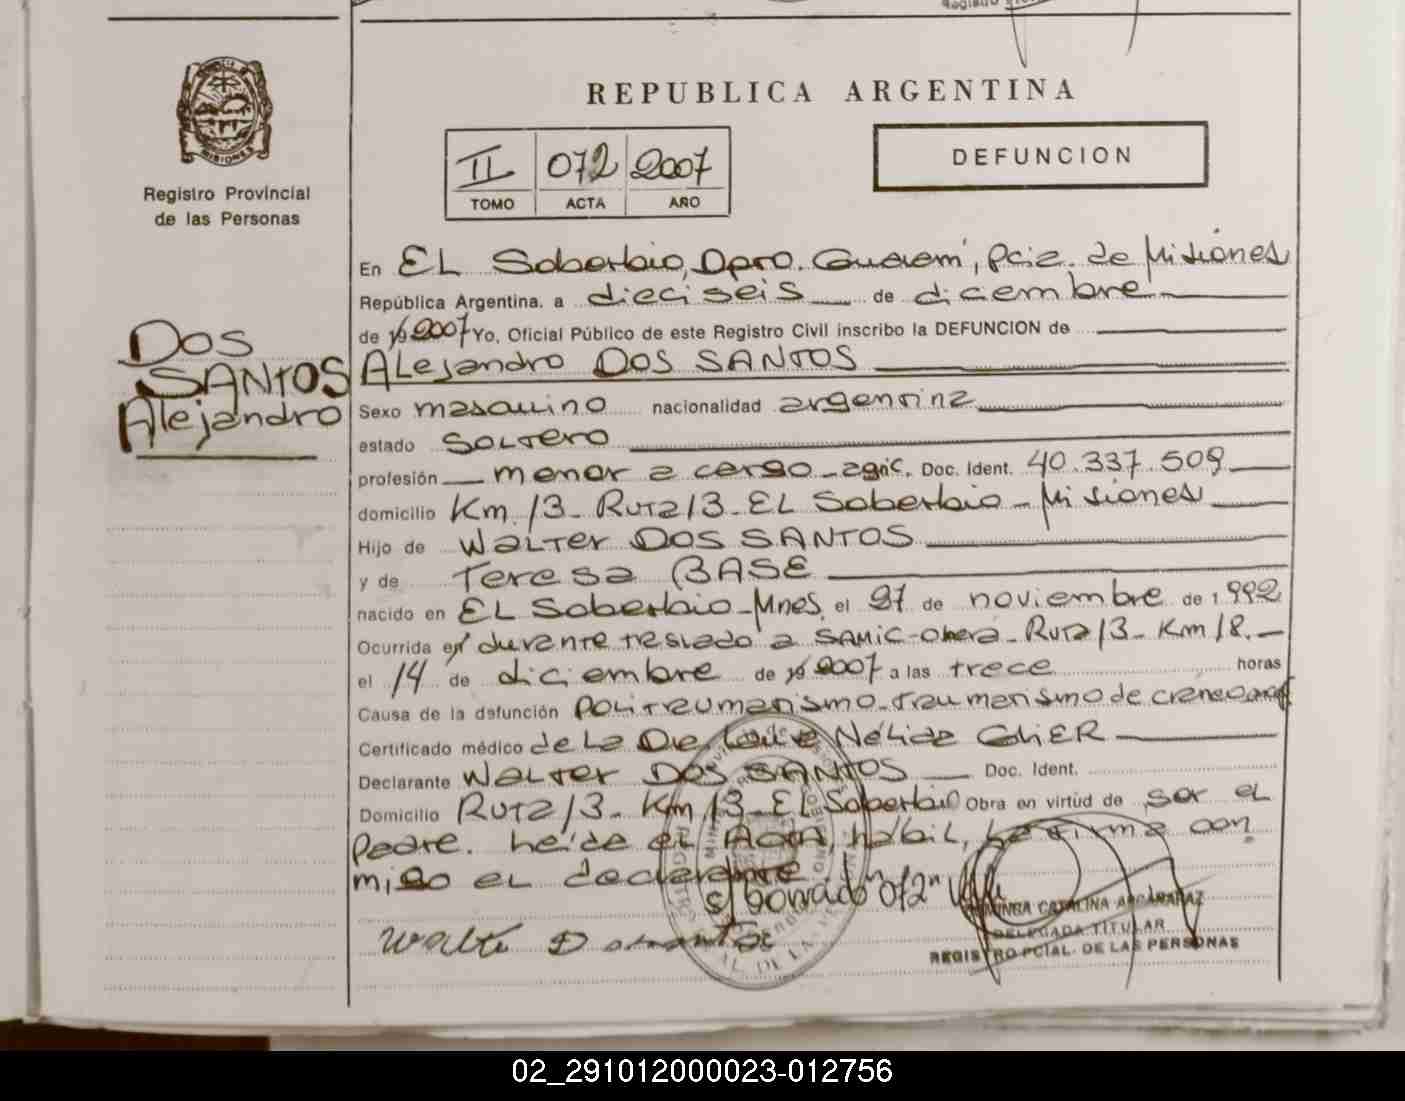 REPUBLICA ARGENTINA
MISIONES
Registro Provincial
de las Personas
II 072 2007
TOMO ACTA AÑO
DEFUNCION
DOS
SANTOS
Alejandro
En EL Soberbio, Dpto. Guaraní, Pcia. de Misiones
República Argentina, a dieciseis de diciembre
de 19 2007 Yo, Oficial Público de este Registro Civil inscribo la DEFUNCION de
Alejandro DOS SANTOS
Sexo masculino nacionalidad argentina
estado Soltero
profesión menor a cargo - agric. Doc. Ident. 40.337.509
domicilio Km. 13 - Ruta 13 - EL Soberbio - Misiones
Hijo de Walter DOS SANTOS
y de Teresa BASE
nacido en EL Soberbio - Mnes. el 27 de noviembre de 1992
Ocurrida en durante traslado a SAMIC - Oberá - Ruta 13 - Km 18. -
el 14 de diciembre de 19 2007 a las trece horas
Causa de la defunción Politraumatismo - traumatismo de craneo
Certificado médico de La Nélida
Declarante Walter DOS SANTOS Doc. Ident.
Domicilio Ruta 13 - Km 13 - EL Soberbio Obra en virtud de ser el
Padre. Leída el Acta, hábil, la firma con
migo el declarante
s/ borrado "072" Vale
Walter D santos
DOMINGA CATALINA
DELEGADA TITULAR
REGISTRO PCIAL. DE LAS PERSONAS
02_291012000023-012756